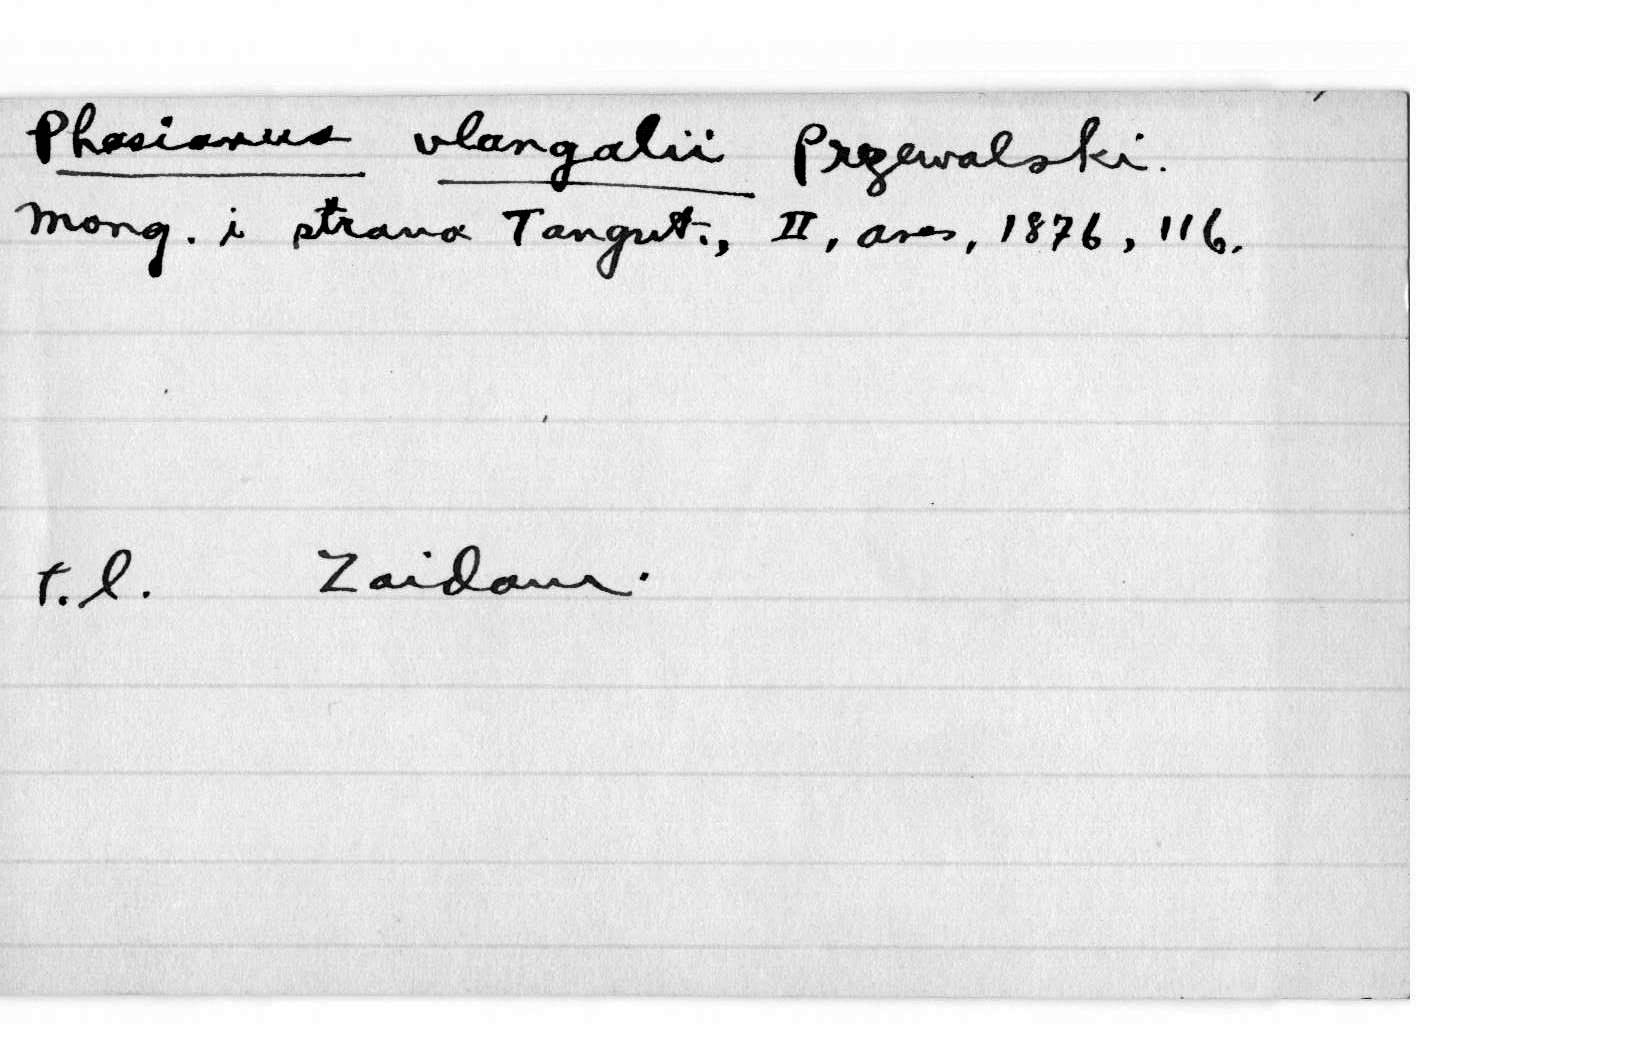 Phasianus vlangalii Przewalski.
Mong. i strana Tangut., II, aves, 1876, 116.
t.l. Zaidam.